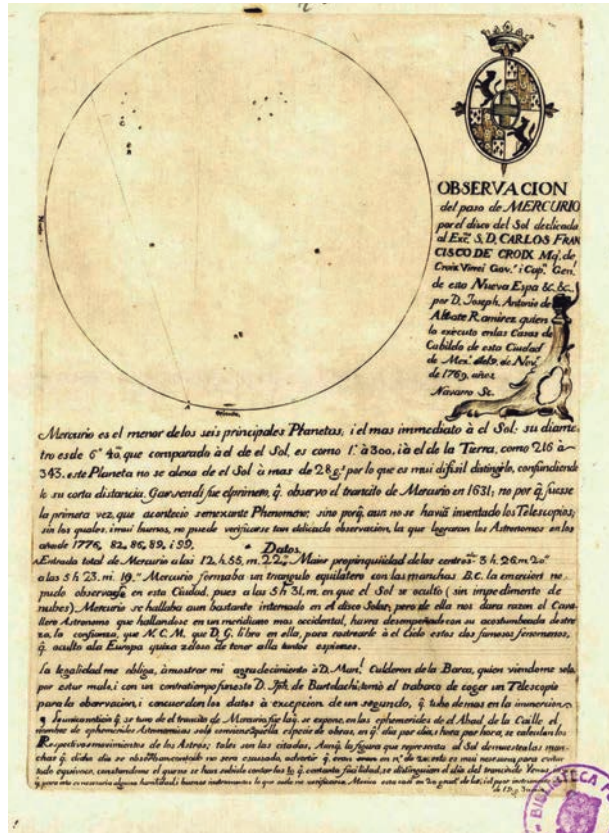 OBSERVACION
del paso de MERCURIO
por el disco del Sol dedicada
al Exc. S. D. CARLOS FRAN
CISCO DE CROIX Mq. de
Croix Virrei Gov.r i Cap.n Gen.l
de esta Nueva Espa &c. &c.
por D. Joseph. Antonio de
Alzate Ramirez quien
la executo en las Casas de
Cabildo de esta Ciudad
de Mex. del 9. de Nov.
de 1769. años
Navarro Sc.
Mercurio es el menor de los seis principales Planetas, i el mas immediato à el Sol: su diame
tro es de 6" 40, que comparado à el de el Sol, es como 1. à 300. i à el de la Tierra, como 216 à
343. este Planeta no se alexa de el Sol à mas de 28 g.s por lo que es mui difisil distinguirlo, confundiendo
se su corta distancia. Gassendi fue el primero, q. observo el trancito de Mercurio en 1631; no por q. fuesse
la primera vez, que acontecio semexante Phenomeno; sino porq. aun no se havia inventado los Telescopios;
sin los quales, i mui buenos, no puede verificarse tan delicada observacion, la que lograran los Astronomos en los
años de 1776, 82, 86, 89, i 99.
Datos
Entrada total de Mercurio a las 12 h. 55, m. 22, Maior propinquidad de los centros 3 h. 26. m. 20"
a las 5 h 23. m. 19." Mercurio formaba un triangulo equilatero con las manchas B. C. la emercion no
pudo observarse en esta Ciudad, pues a las 5 h 31, m. en que el Sol se oculto ( sin impedimento de
nubes) Mercurio se hallaba aun bastante internado en el disco Solar; pero de ella nos dara razon el Cava
llero Astronomo que hallandose en un meridiano mas occidental, havra desempeñado con su acostumbrada destre
za, la confianza, que N. C. M. que D. G. libro en ella, para rastrearle à el Cielo estos dos famosos fenomenos,
q. oculto a la Europa quiza zeloso de tener alla tantos espiones.
La legalidad me obliga, à mostrar mi agradecimiento à D. Man.l Calderon de la Barca, quien viendome solo
por estar malo, i con un contratiempo funesto D. Jph. de Bartolachi, tomò el trabaxo de coger un Telescopio
para la observacion, i concuerdan los datos à excepcion de un segundo, q. tubo de mas en la immercion
La unica noticia q. se tuvo de el trancito de Mercurio, fue la q. se expone, en las ephemerides de el Abad, de la Caille el
nombre de ephemerides Astronomicas solo conviene à aquella especie de obras, en q. dia por dia, i hora por hora, se calculan los
Respectivos movimientos de los Astros; tales son las citadas, Aunq. la figura que representa al Sol demuestra las man
chas q. dicho dia se observaron
BIBLIOTECA